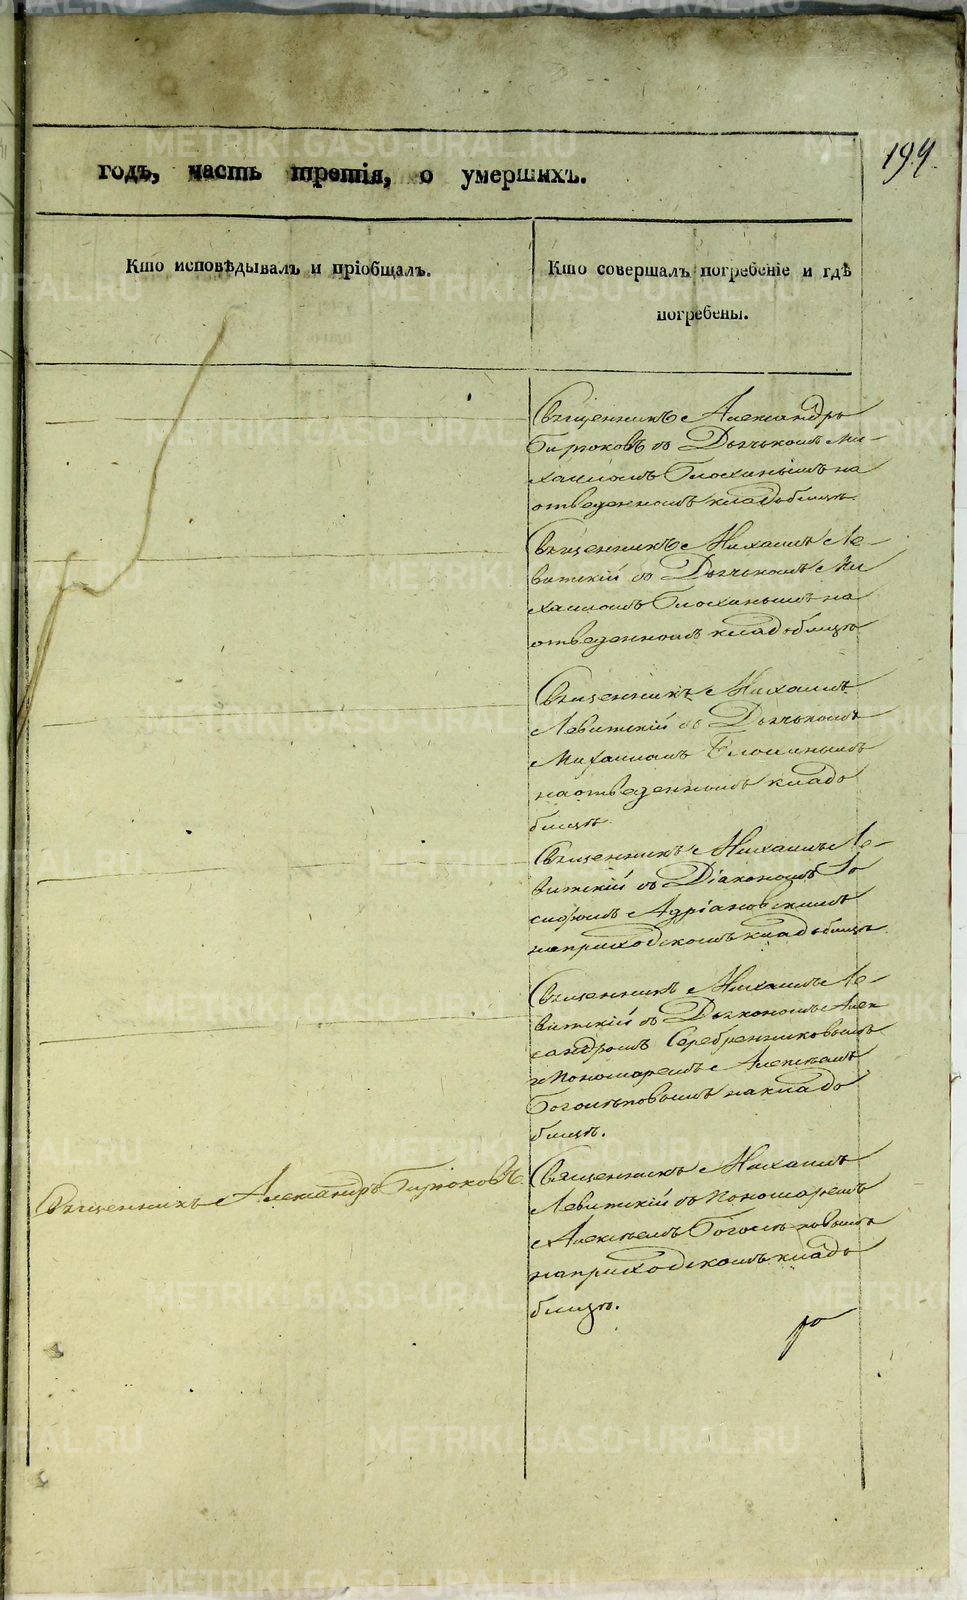 194.
годъ, часть третія, о умершихъ.
Кто исповѣдывалъ и пріобщалъ.
Кто совершалъ погребеніе и гдѣ
погребены.
Священникъ Александръ
Бирюковъ съ Дьячькомъ Ми-
хаиломъ Блохинымъ на
отведенномъ кладбищѣ.
Священникъ Михаилъ Ле-
витскій съ Дьячькомъ Ми
хаиломъ Блохинымъ на
отведенномъ кладбищѣ
Священникъ Михаилъ
Левитскій съ Дьячькомъ
Михаиломъ Блохинымъ
на отведенномъ кладъ
бищѣ.
Священникъ Михаилъ Ле-
витскій съ Діакономъ Іо
сифомъ Адріановскимъ
на приходскомъ кладъбищѣ
Священникъ Михаилъ Ле-
витскій съ Дьякономъ Алек
сандромъ Серебренниковымъ
и Пономаремъ Алексѣемъ
Боголѣповымъ на кладъ
бищѣ.
Священникъ Александръ Бирюковъ.
Священникъ Михаилъ
Левитскій съ Пономаремъ
Алексѣемъ Боголѣповымъ
на приходскомъ кладъ
бищѣ.
METRIKI.GASO-URAL.RU